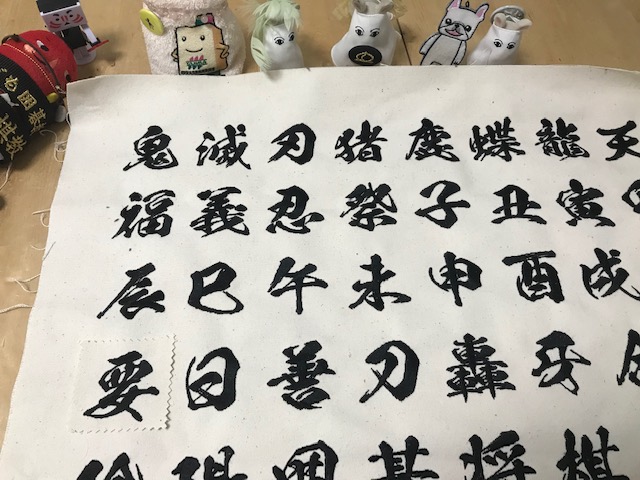 鬼滅刃猪鹿蝶龍天
福義忍祭子丑寅
辰巳午未申酉戌
要日善刀轟牙
陽囲碁将棋